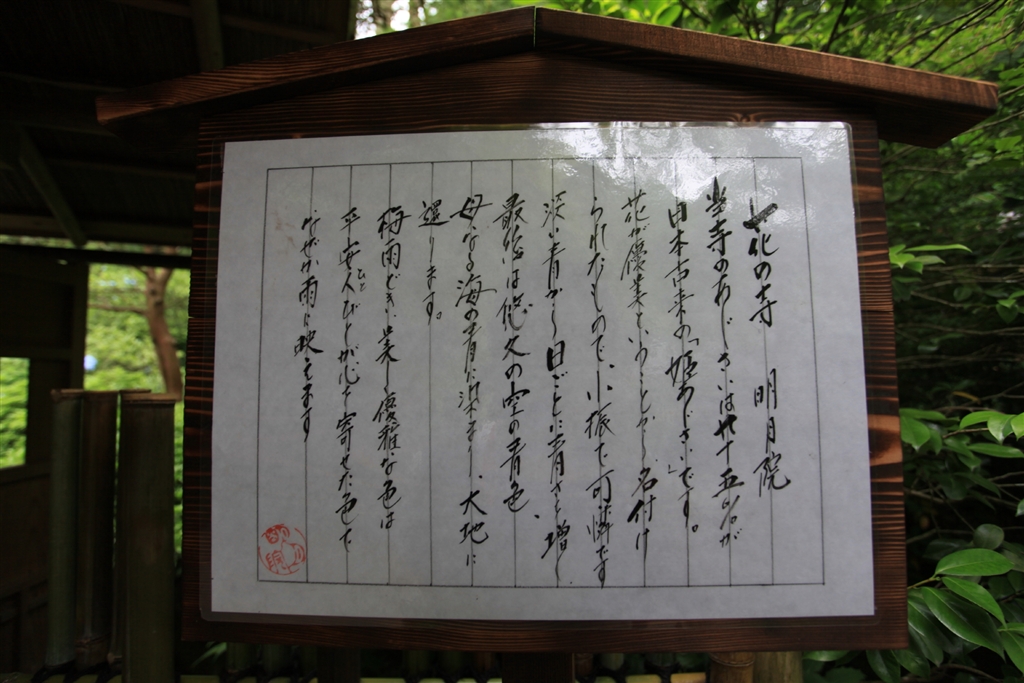 花の寺 明月院
当寺のあじさいは九十五%が
日本古来の「姫あじさい」です。
花が優美というところから名付け
られたもので、小振で可憐です
淡い青から日ごとに青さを増し
最後は悠久の空の青色、
母なる海の青に染まり、大地に
還ります。
梅雨どきに美しく優雅な色は
平安人びとが心を寄せた色で
ひと
なぜか雨に映えます
明月院